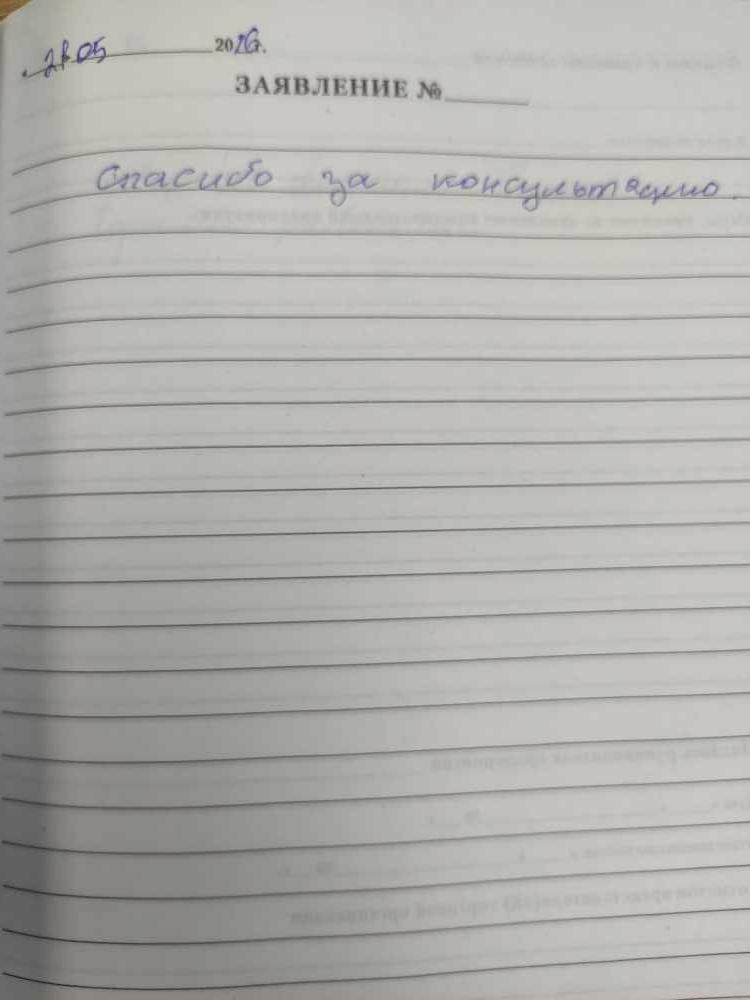 28.05 2026.
ЗАЯВЛЕНИЕ №
Спасибо за консультацию.